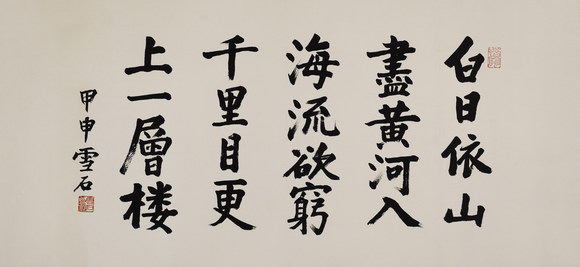 白日依山
盡黄河入
海流欲窮
千里目更
上一層楼
甲申雪石